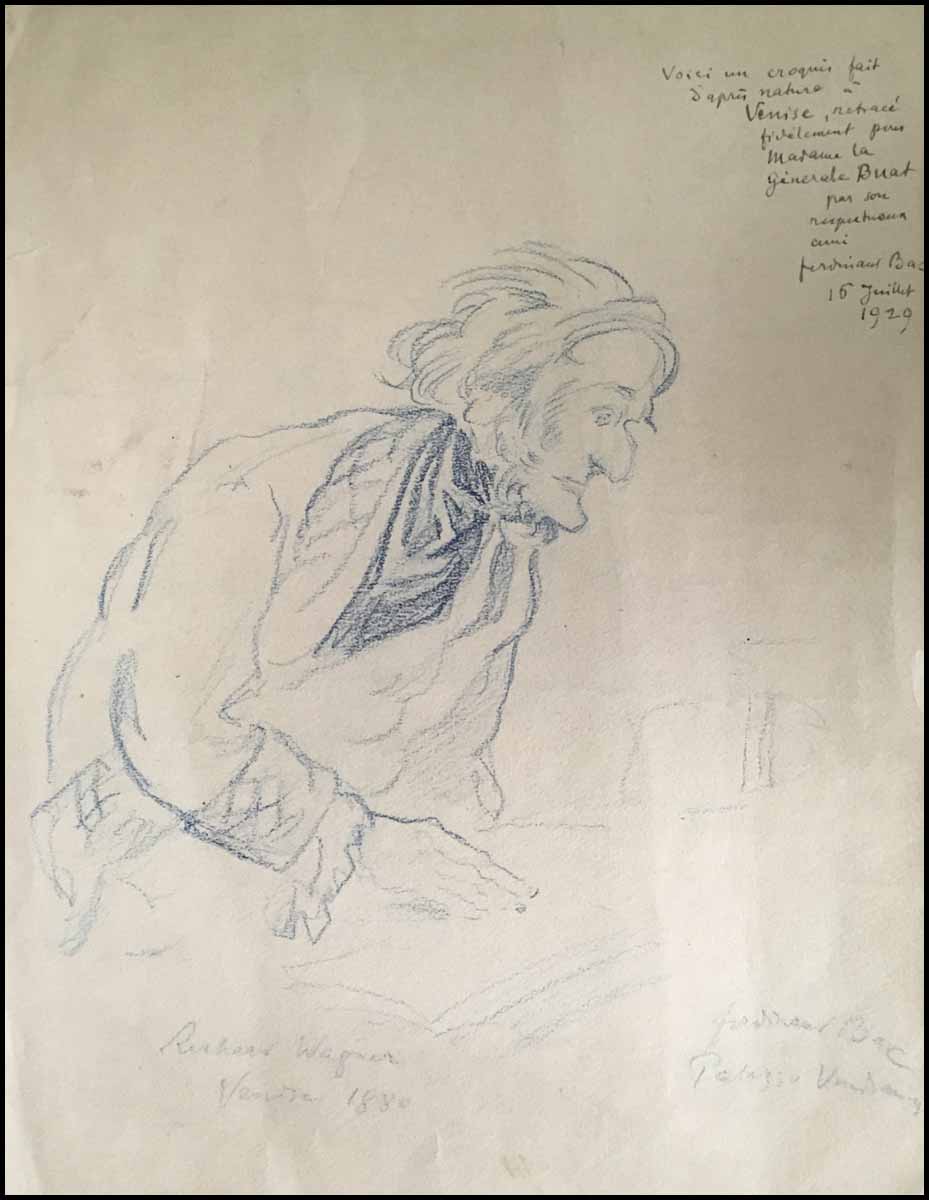 Voici un croquis fait
d'après nature à
Venise, retracé
fidèlement pour
Madame la
Générale Buat
par son
respectueux
ami
Ferdinand Bac
15 Juillet
1929
Richard Wagner
Venise 1880
Ferdinand Bac
Palazzo Vendramin